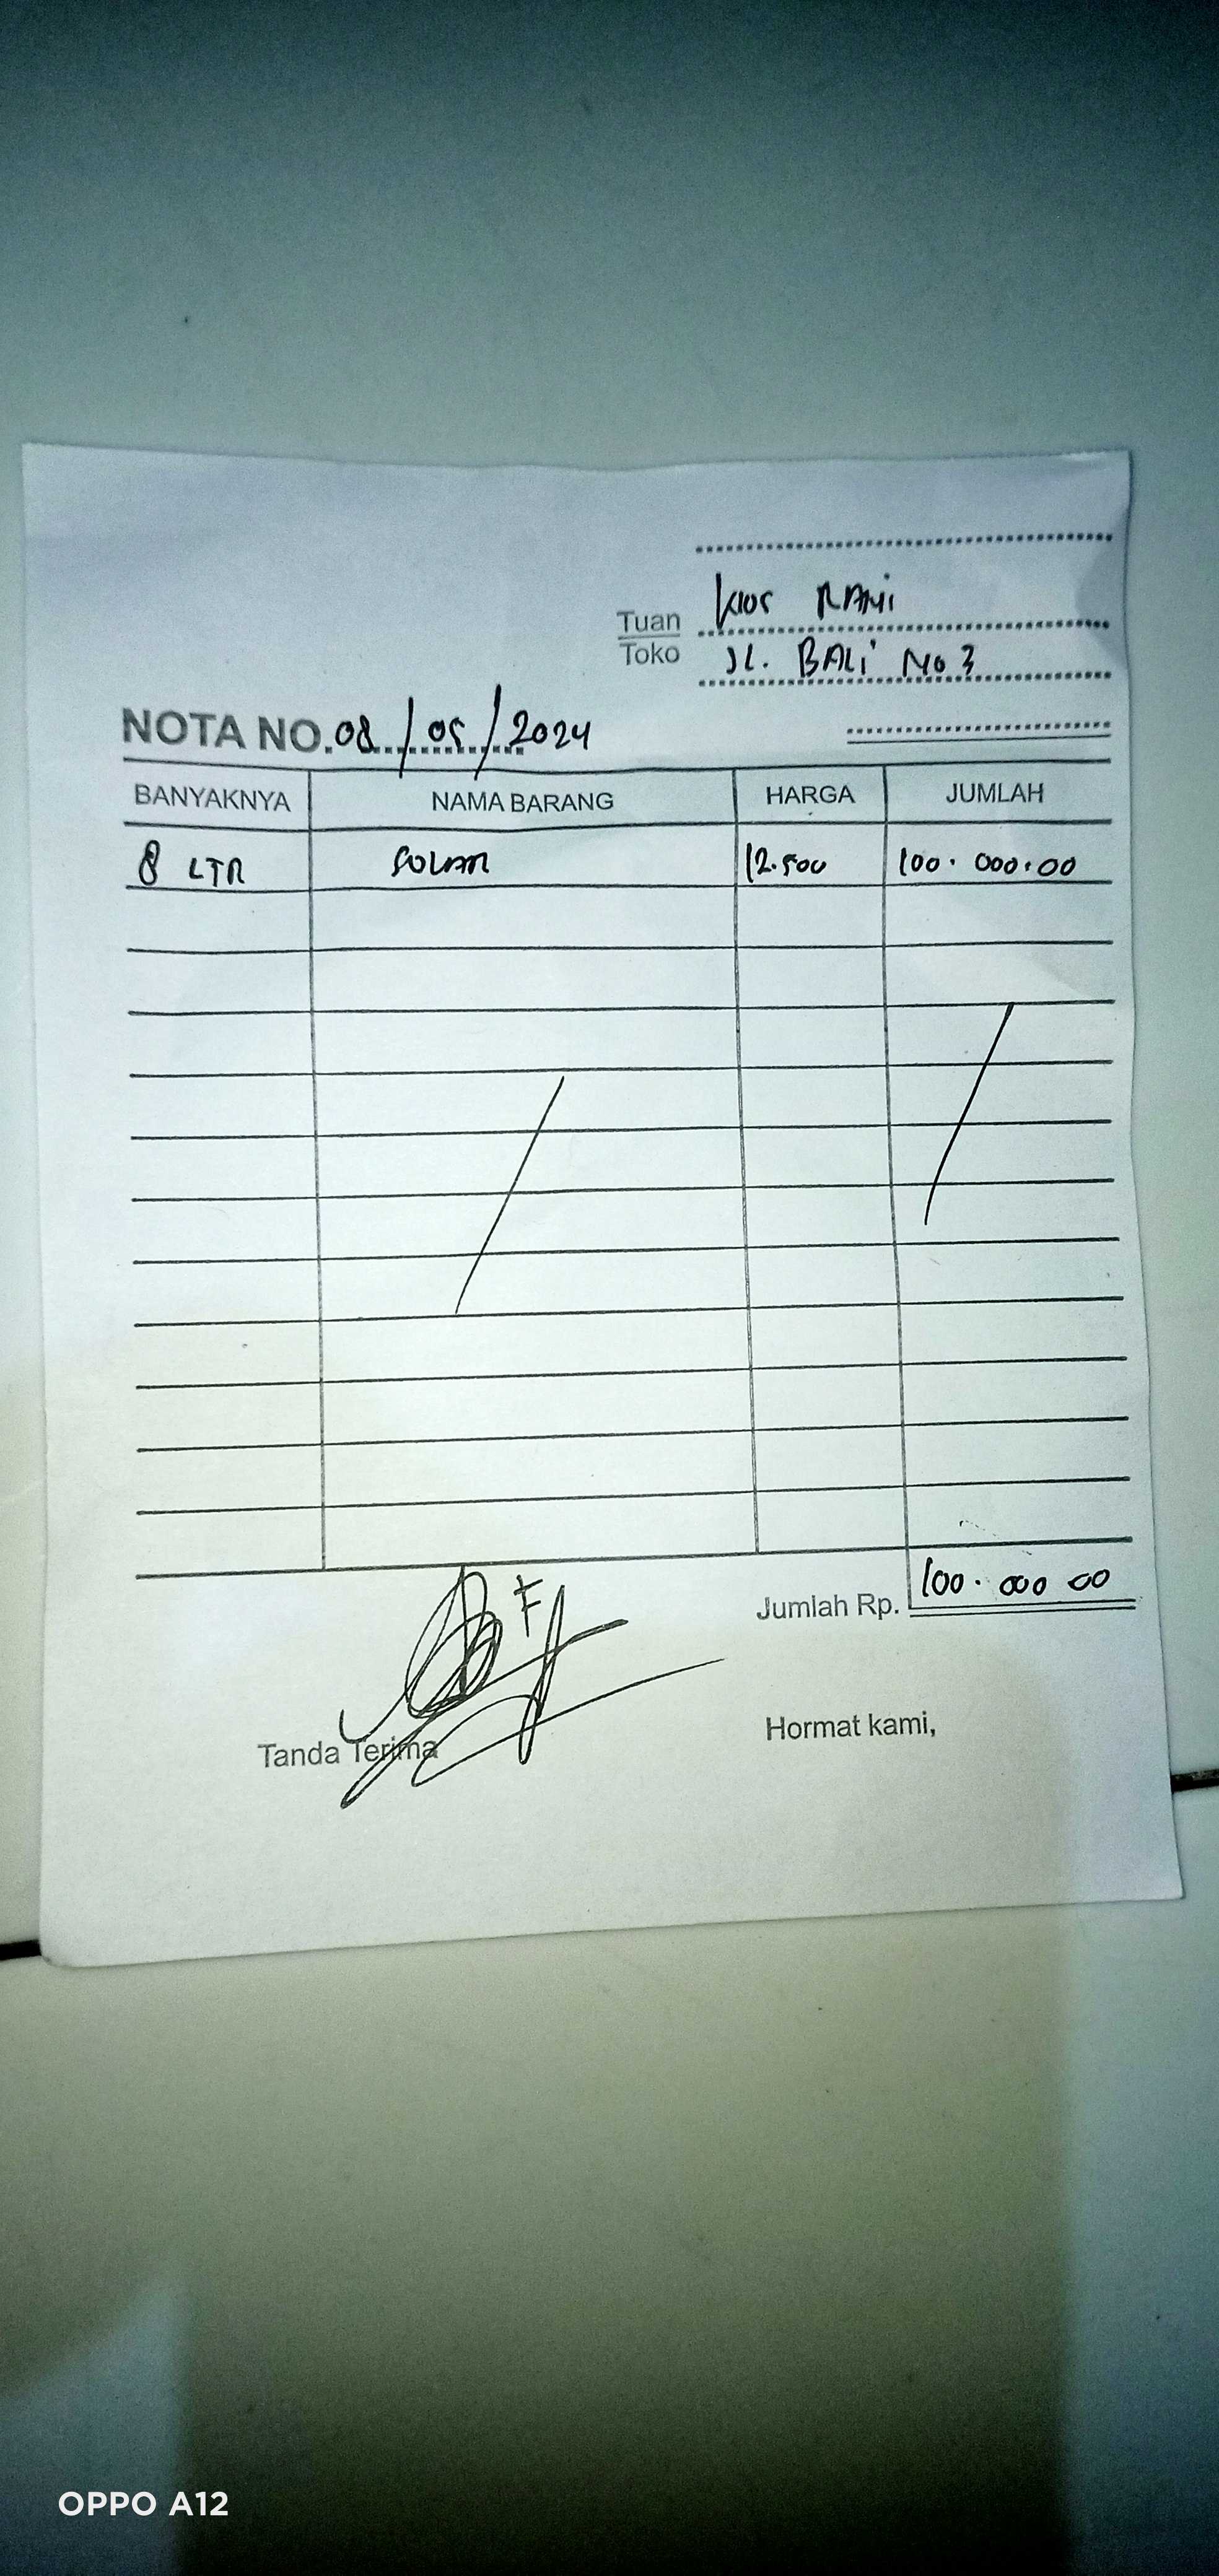 Kios RAMI
Tuan
Toko
JL. BALi No 3
NOTA NO. 08/05/2024
BANYAKNYA NAMA BARANG HARGA JUMLAH
8 LTR SOLAR 12.500 100.000.00
Jumlah Rp. 100.000 00
Tanda Terima
Hormat kami,
OPPO A12